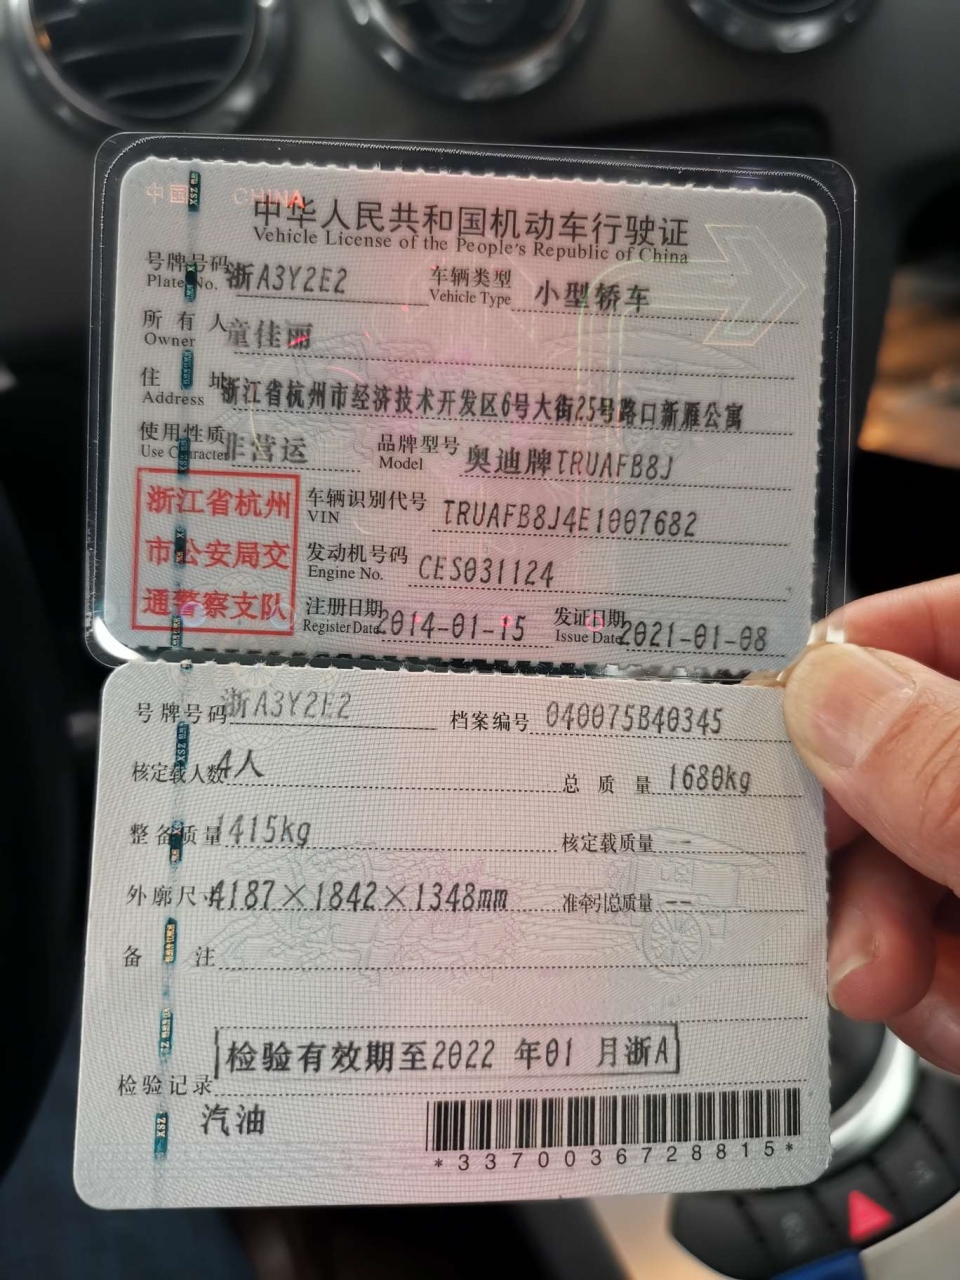 中国 CHINA
中华人民共和国机动车行驶证
Vehicle License of the People's Republic of China
号牌号码 浙A3Y2E2 车辆类型 小型轿车
Plate No. Vehicle Type
所有人 童佳丽
Owner
住址 浙江省杭州市经济技术开发区6号大街25号路口新雁公寓
Address
使用性质 非营运 品牌型号 奥迪牌TRUAFB8J
Use Character Model
浙江省杭州
市公安局交
通警察支队
车辆识别代号 TRUAFB8J4E1007682
VIN
发动机号码 CES031124
Engine No.
注册日期 2014-01-15 发证日期 2021-01-08
Register Date Issue Date
号牌号码 浙A3Y2E2 档案编号 040075B40345
核定载人数 4人 总质量 1680kg
整备质量 1415kg 核定载质量 --
外廓尺寸 4187×1842×1348mm 准牵引总质量 --
备注
检验有效期至2022 年01 月浙A
检验记录
汽油
*3370036728815*